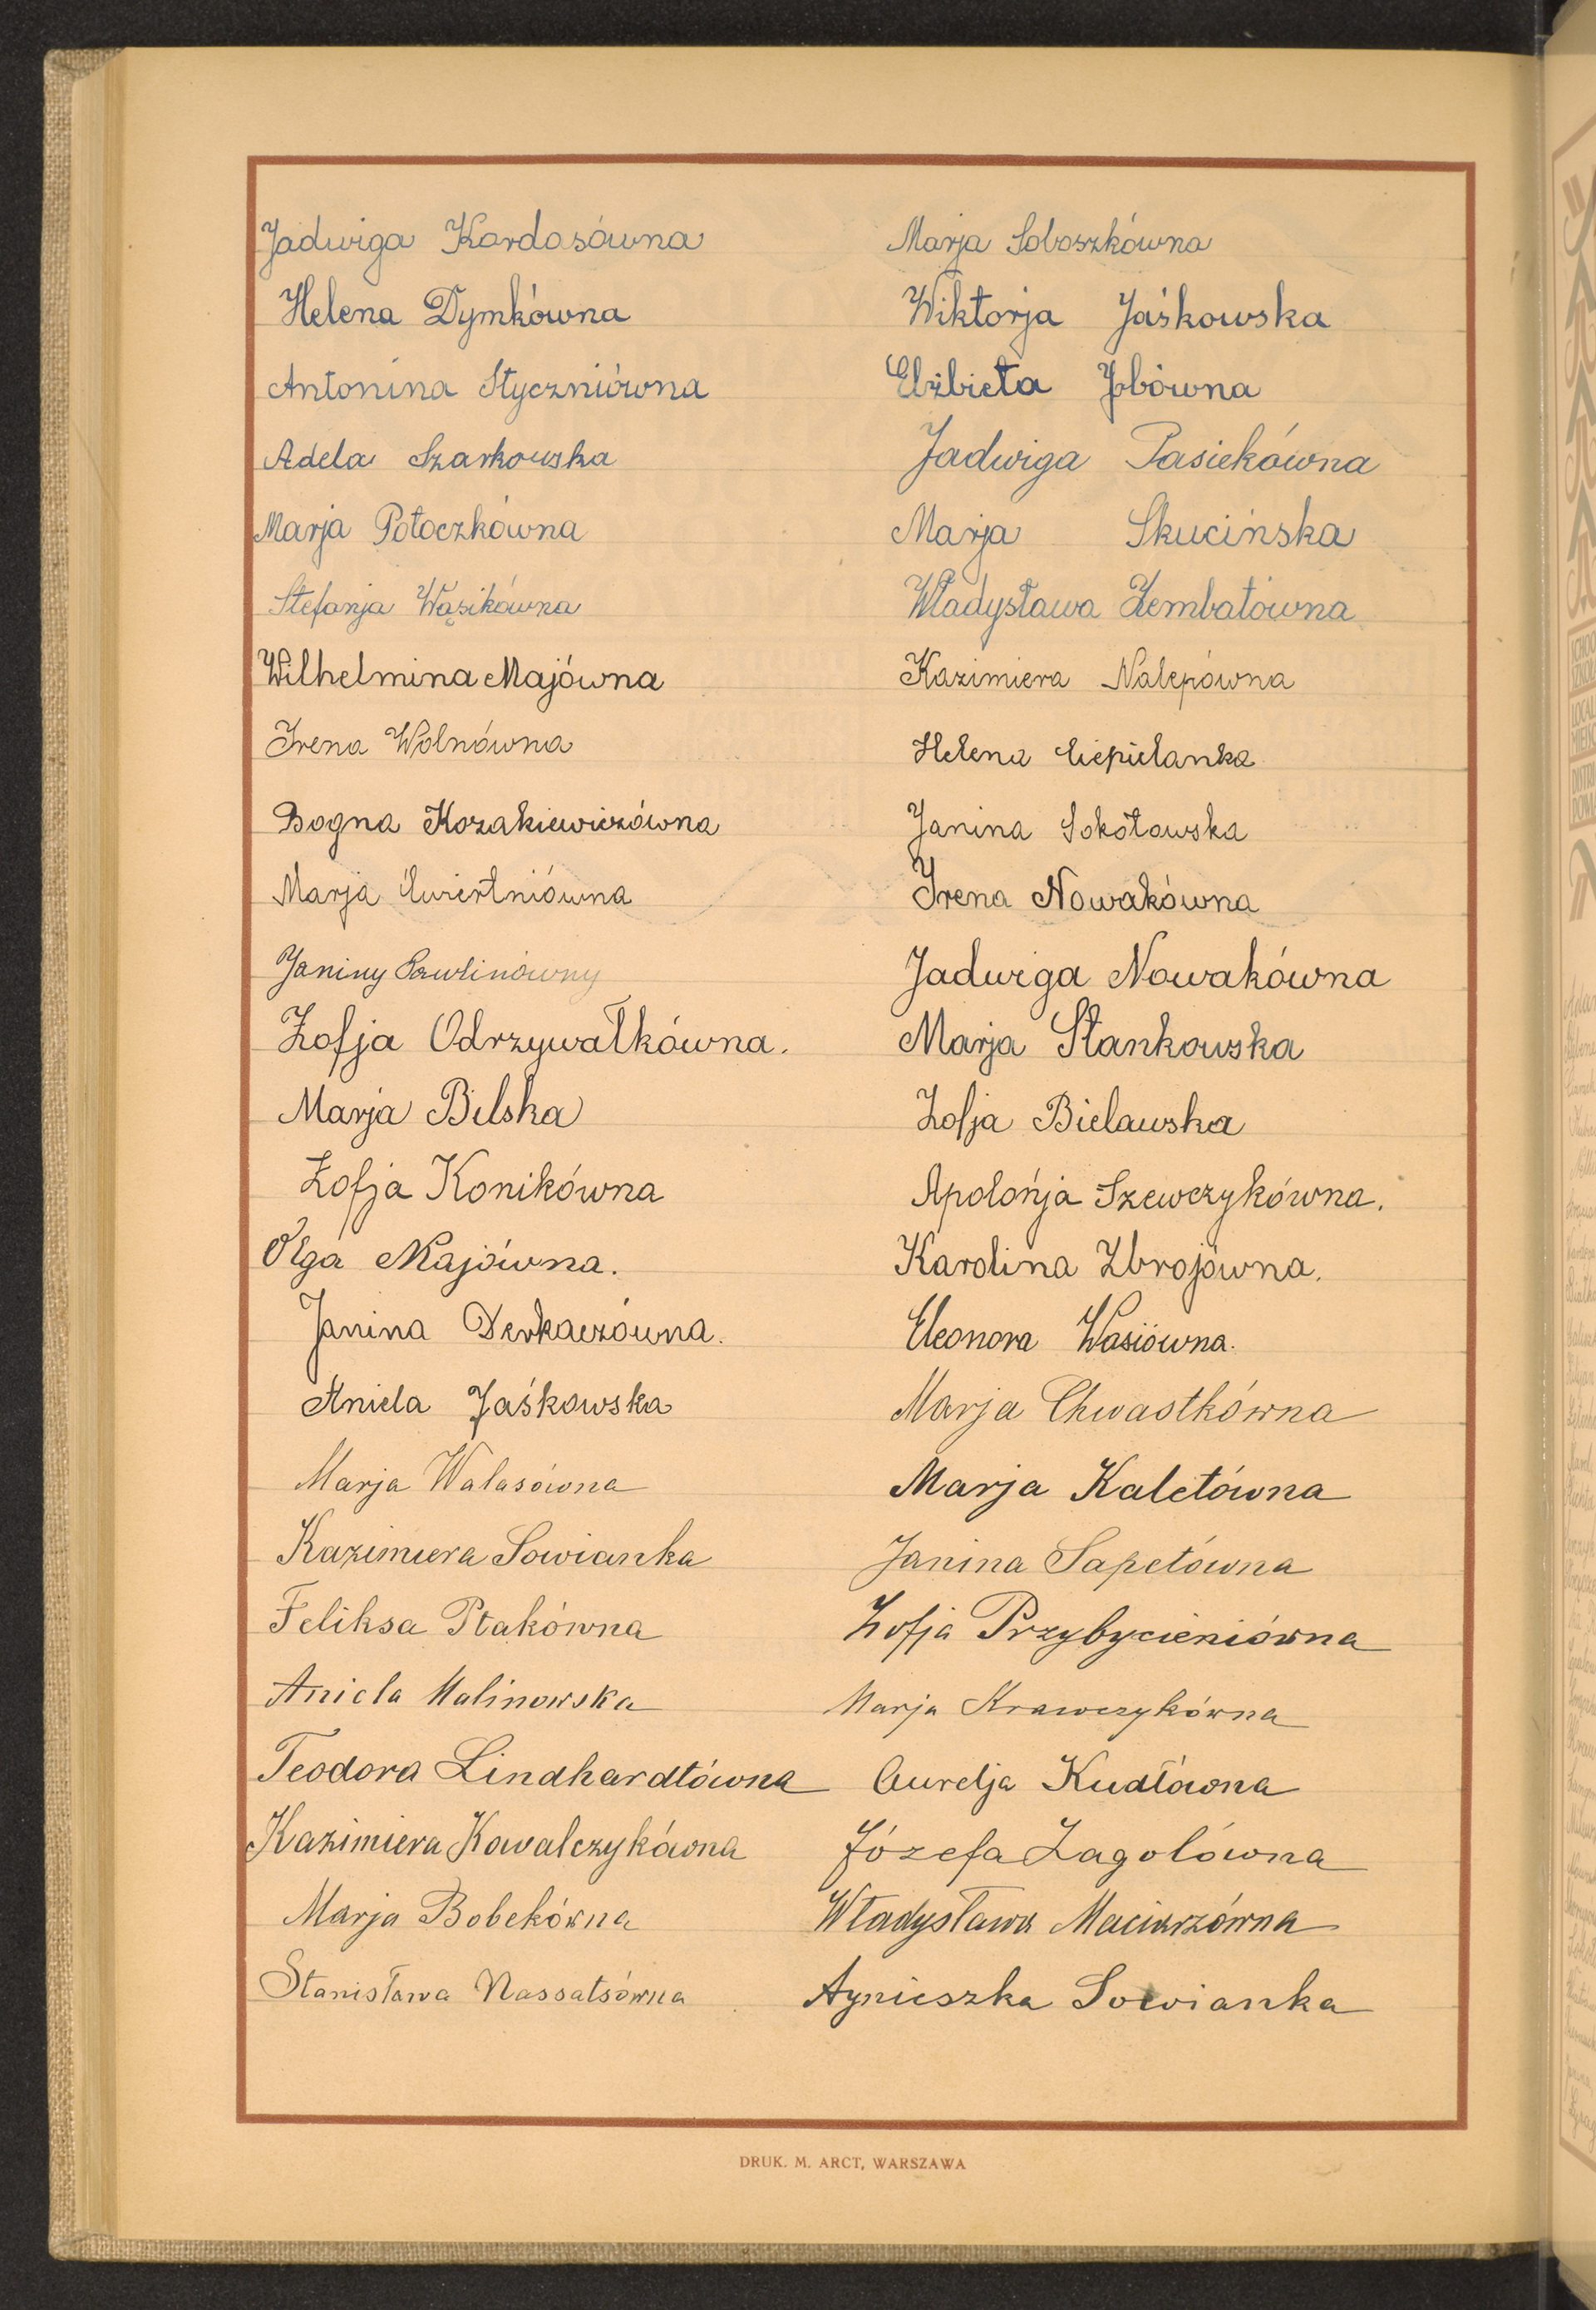 Jadwiga Kardasówna
Helena Dymkówna
Antonina Styczniówna
Adela Szarkowska
Marja Potoczkówna
Stefanja Wąsikówna
Wilhelmina Majówna
Irena Wolnówna
Bogna Kozakiewiczówna
Marja Ćwiertniówna
Janiny Pawlinówny
Zofja Odrzywałkówna.
Marja Bilska
Zofja Konikówna
Olga Majówna.
Janina Derkaczówna.
Aniela Jaśkowska
Marja Walasówna
Kazimiera Sowianka
Feliksa Ptakówna
Aniela Malinowska
Teodora Lindhardtówna
Kazimiera Kowalczykówna
Marja Bobekówna
Stanisława Nassalsówna
Marja Soboszkówna
Wiktorja Jaśkowska
Elżbieta Jobówna
Jadwiga Pasiekówna
Marja Skucińska
Władysława Zembatówna
Kazimiera Nalepówna
Helena Ciepielanka
Janina Sokołowska
Irena Nowakówna
Jadwiga Nowakówna
Marja Stankowska
Zofja Bielawska
Apolońja Szewczykówna.
Karolina Zbrojówna.
Eleonora Wasiówna.
Marja Chwastkówna
Marja Kaletówna
Janina Sapetówna
Zofja Przybycieniówna
Marja Krawczykówna
Aurelja Kudłówna
Józefa Zagolówna
Władysława Maciarzówna
Agnieszka Sowianka
DRUK. M. ARCT, WARSZAWA